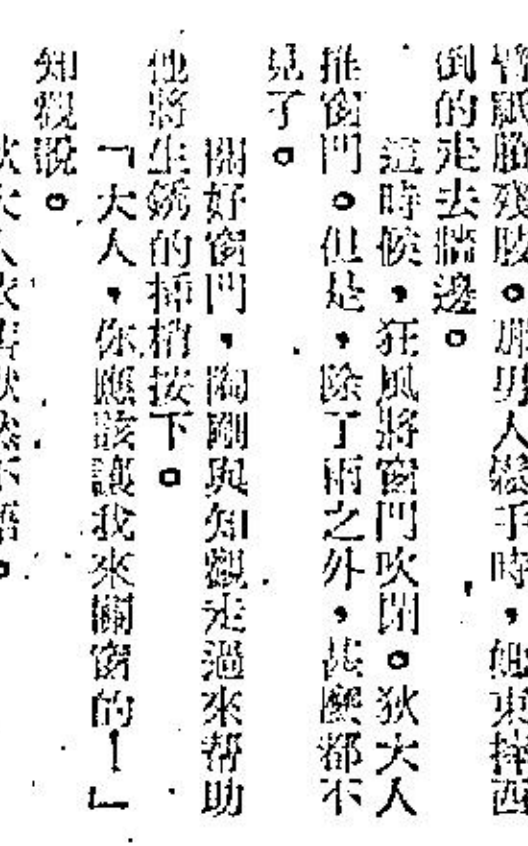 臂祇賸殘肢。那男人鬆手時,她東摔西
倒的走去牆邊。
這時候,狂風將窗門吹開。狄大人
推窗門。但是,除了雨之外,甚麼都不
見了。
關好窗門,陶剛與知觀走過來帮助
他將生銹的插梢按下。
「大人,你應該讓我來關窗的!」
知觀說。
狄大人